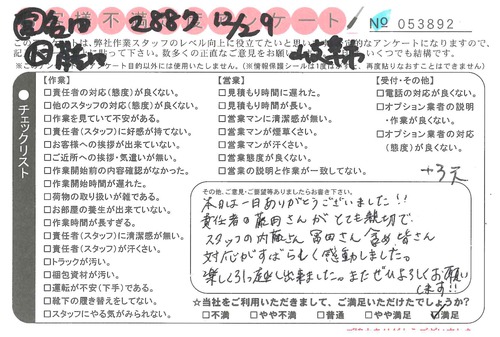 お客様不満足度アンケート
2887 12/29
№ 053892
このアンケートは、弊社作業スタッフのレベル向上に役立てたいと思い
【作業】
□責任者の対応(態度)が良くない。
□他のスタッフの対応(態度)が良くない。
□作業を見ていて不安がある。
□責任者(スタッフ)に好感が持てない。
□お客様への挨拶が出来ていない。
□ご近所への挨拶・気遣いが無い。
□作業開始前の内容確認がなかった。
□作業開始時間が遅れた。
□荷物の取り扱いが雑である。
□お部屋の養生が出来ていない。
□作業時間が長すぎる。
□責任者(スタッフ)に清潔感が無い。
□責任者(スタッフ)が汗くさい。
□トラックが汚い。
□梱包資材が汚い。
□運転が安全(下手)である。
□靴下の履き替えをしてない。
□スタッフにやる気がみられない。
【営業】
□見積もり時間に遅れた。
□見積もり時間が長い。
□営業マンに清潔感が無い。
□営業マンが煙草くさい。
□営業マンが汗くさい。
□営業態度が良くない。
□営業の説明と作業が一致してない。
【受付・その他】
□電話の対応が良くない。
□オプション業者の説明
・作業が良くない。
□オプション業者の対応
(態度)が良くない。
チェックリスト
その他、ご意見・ご要望等ありましたらお書き下さい。
本日は一日ありがとうございました!!
責任者の藤田さんがとても親切で
スタッフの内藤さん 富田さん 含め皆さん
対応がすばらしく感動しました。
楽しく引っ越し出来ました。またぜひよろしくお願い
します!!
☆当社をご利用いただきまして、ご満足いただけたでしょうか?
□不満 □やや不満 □普通 □やや満足 ☑満足